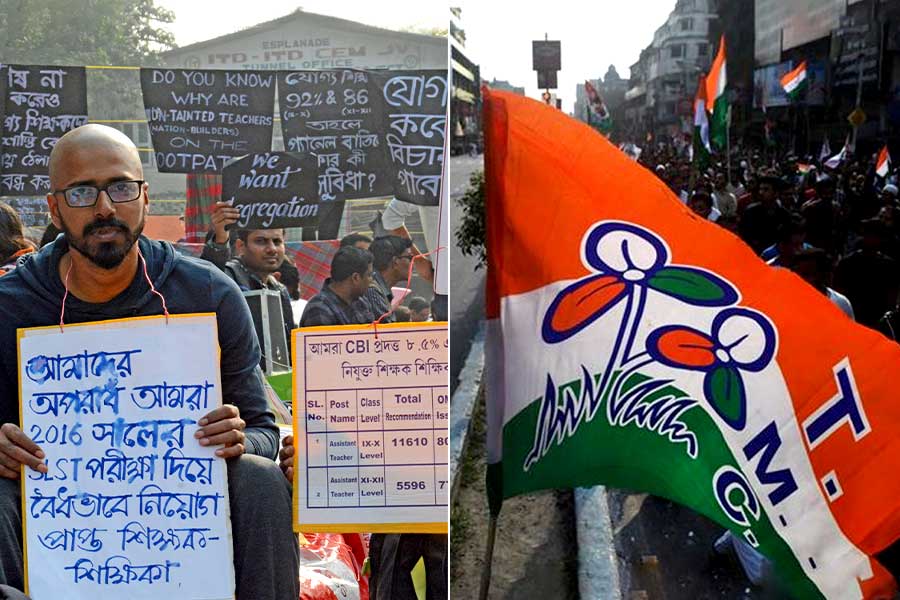 ESPLANADE
ITD-ITD CEM JV
TUNNEL OFFICE
ষ না
করেও
গ্য শিক্ষকদের
স্তি কেন
বন্ধ কর
DO YOU KNOW
WHY ARE
NON-TAINTED TEACHERS
(NATION-BUILDERS)
ON THE
FOOTPATH
We
Want
Segregation
92% & 86
(IX-X) (XI-XII)
তাহলে
প্যানেল বাতিল
কার কী
সুবিধা?
যোগ
করে
বিচার
পাবে
আমাদের
অপরাধ আমরা
2016 সালের
SLST পরীক্ষা দিয়ে
বৈধভাবে নিয়োগ
প্রাপ্ত শিক্ষক-
শিক্ষিকা
আমরা CBI প্রদত্ত ৮.৫% এ
নিযুক্ত শিক্ষক শিক্ষি
SL. No. Post Name Class Level Total Recommendation OM Iss
1 Assistant Teacher IX-X Level 11610 80
2 Assistant Teacher XI-XII Level 5596 77
T.M.C.